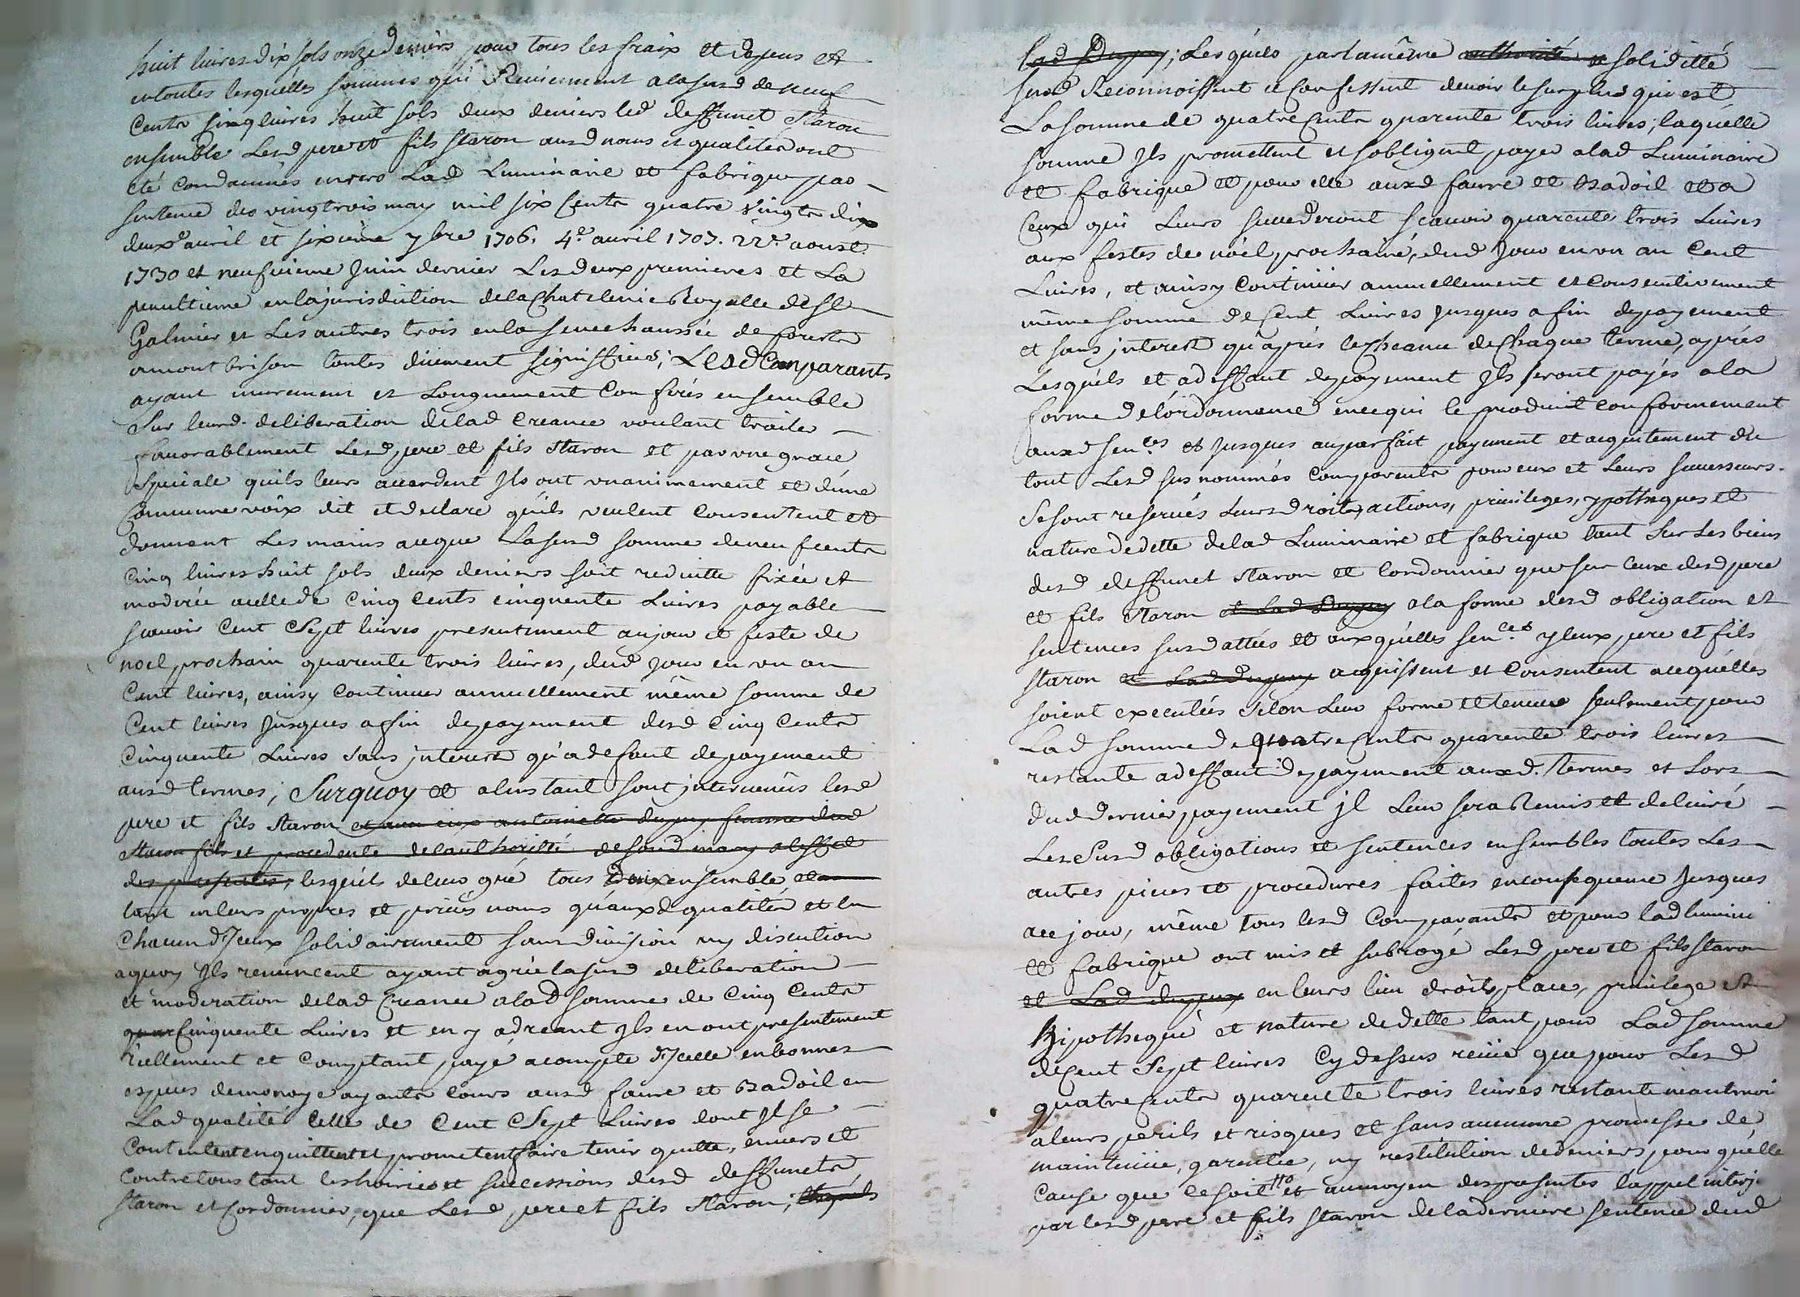 huit livres dix sols onze deniers pour tous les fraix et depens et
entoutes lesquelles sommes qui Reviennent a la susd de neuf
Cents cinq livres huit sols deux deniers led deffunct Staron
ensemble Lesd pere et fils Staron ausd noms et qualités ont
été condamnés envers Lad Luminaire et fabrique par
sentence des vingt trois may mil six Cents quatre vingts dix
deuxe avril et sixieme 7bre 1706. 4e avril 1707. 22e aoust
1730 et neufvieme Juin dernier Les deux premieres et La
penultieme en la jurisdiction de la Chatelenie Royalle de St
Galmier et Les autres trois en la senechaussée de forests
a montbrison toutes düement signiffiées; Lesd Comparants
ayant murement et Longuement Conferés ensemble
Sur leurd. deliberation de lad Creance voulant traiter
favorablement Lesd pere et fils Staron et par une grace
Speciale quils leurs accordent Ils ont unanimement et dune
Commune voix dit et declaré quils veulent Consentent et
donnent Les mains aceque La susd somme de neuf cents
Cinq livres huit sols deux deniers soit reduitte fixée et
moderée acelle de Cinq Cents cinquente Livres payable
scavoir Cent Sept livres presentement au jour et feste de
noel prochain quarente trois livres, dud Jour en un an
Cent livres, ainsy continuer annuellement même somme de
Cent livres Jusques a fin de payement desd Cinq Cents
Cinquente Livres sans interest qu'a defaut de payement
ausd termes; Surquoy et alinstant sont intervenües lesd
pere et fils Staron et avec eux antoinette dupuy femme dud
Staron fils et procedente de l'authorité de sond mary a leffet
des presentes; lesquéls deleur gré tous Deux ensemble et
tant en leurs propres et privés noms qu'auxd qualités et lun
Chacun d'Iceux solidairement sans division ny discution
aquoy Ils renuncent ayant agréé la susd deliberation
et moderation de lad Creance a lad somme de Cinq Cents
quar Cinquente Livres et en y adreant Ils en ont presentement
réellement et Comptant payé acompte d'Icelle en bonnes
especes de monoye ayants cours ausd favre et Badoil en
Lad qualité Celle de Cent Sept Livres dont Ils se
Contentent en quittent et promettent faire tenir quitte, envers et
Contre tous tant les hoiries et successions desd deffuncts
Staron et Cordonnier, que Lesd pere et fils Staron; lesquéls
lad Dupuy; Lesquéls par la même authorité et solidité
susd Reconnoissent et Confessent devoir le surplus qui est
La somme de quatre Cents quarente trois livres; laquélle
somme Ils promettent et sobligent payer a lad Luminaire
et fabrique et pour elle auxd favre et Badoil et a
Ceux qui Leurs succederont scavoir quarente trois Livres
aux festes de noël prochaine, dud Jour en un an Cent
Livres, et ainsy Continüer annuellement et consecutivement
même somme de Cent Livres Jusques a fin de payement
et sans interest qu'aprés lecheance de Chaque terme, aprés
Lesquéls et a deffaut de payement Ils seront payés a la
forme de l'ordonnance en ce qui le produit conformement
auxd sences et Jusques au parfait payment et acquitement du
tout Lesd sus nommés Comparents pour eux et Leurs successeurs
Se sont reservés Leurs droits, actions, privileges, ypotheques et
nature de dette de lad Luminaire et fabrique tant sur Les biens
desd deffunct Staron et Cordonnier que sur Ceux desd pere
et fils Staron et Lad Dupuy a la forme desd obligation et
sentences susdattées et auxquélles sences Yceux pere et fils
Staron et Lad dupuy acquissent et Consentent acequélles
soient executées selon Leur forme et teneur seulement pour
Lad somme de quatre Cents quarente trois livres
restante a deffaut de payement auxd. termes et Lors
dud dernier payement il Leur sera Remis et delivré
Les Susd obligations et sentences ensembles toutes Les
autres pieces et procedures faites en consequence Jusques
ace jour, même tous lesd Comparants et pour lad lumini
et fabrique ont mis et subrogé Lesd pere et fils Staron
et Lad dupuy en leurs lieu droits, place, privilege et
Hipotheque et nature de dette tant pour Lad somme
de Cent Sept livres Cy dessus reçüe que pour Lesd
quatre Cents quarente trois livres restante neantmoi
a leurs perils et risques et sans aucunne promesse de
maintenüe, garentie, ny restitution de deniers pour quélle
Cause que ce soit et au moyen des presentes l'appel interj
par lesd pere et fils Staron de la derniere sentence dud